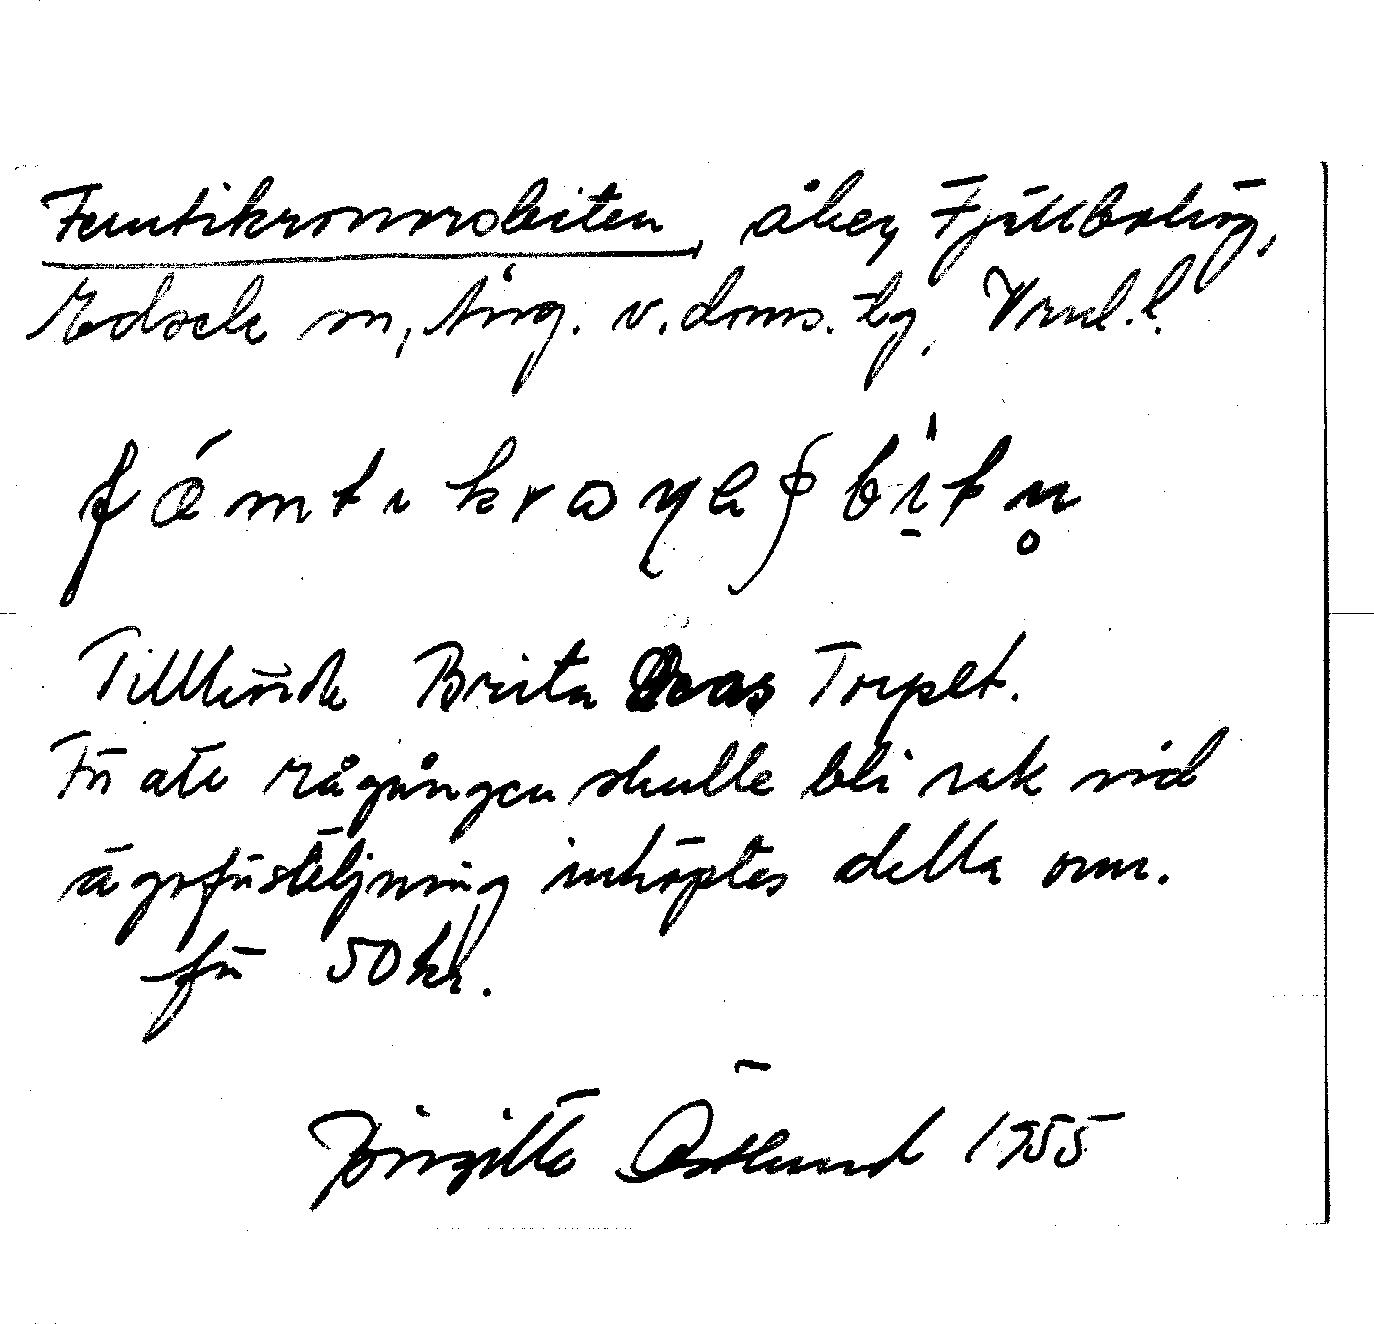 Femtikronorsbiten, åker, Fjällbohög,
Edsele sn, Ång. v. doms. tg, Vnl. l.
fǽmtikroɳaʂbitn̥
Tillhörde Brita Torpet.
För att rågången skulle bli rak vid
ägofästeljning inköptes detta omr.
för 50 kr.
Birgitta Östlund 1955